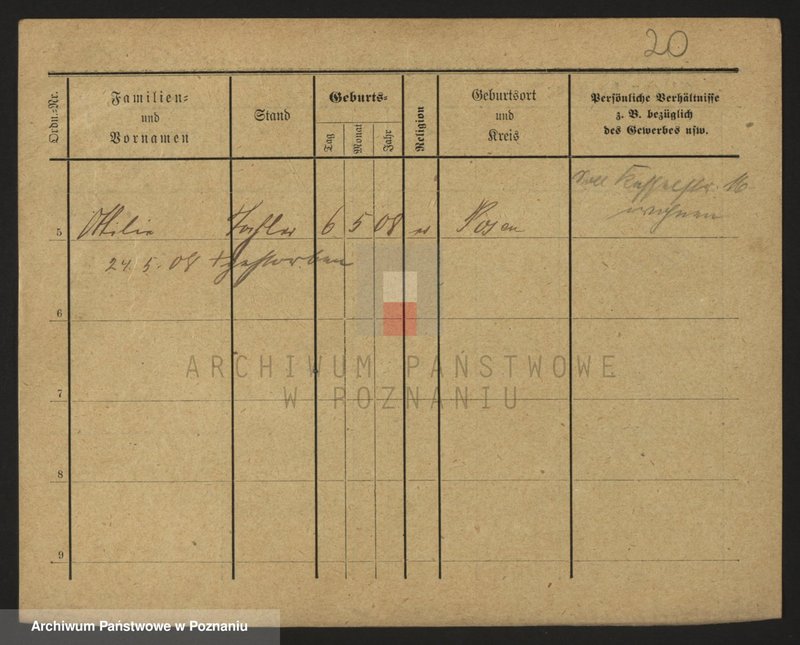 20
Ordn.-Nr.
Familien-
und
Vornamen
Stand
Geburts-
Tag
Monat
Jahr
Religion
Geburtsort
und
Kreis
Persönliche Verhältnisse
z. B. bezüglich
des Gewerbes usw.
Soll 16
wohnen
5 Ottilie Tochter 6 5 08 Posen
24. 5. 08 + gestorben
6
ARCHIWUM PAŃSTWOWE
W POZNANIU
7
8
9
Archiwum Państwowe w Poznaniu